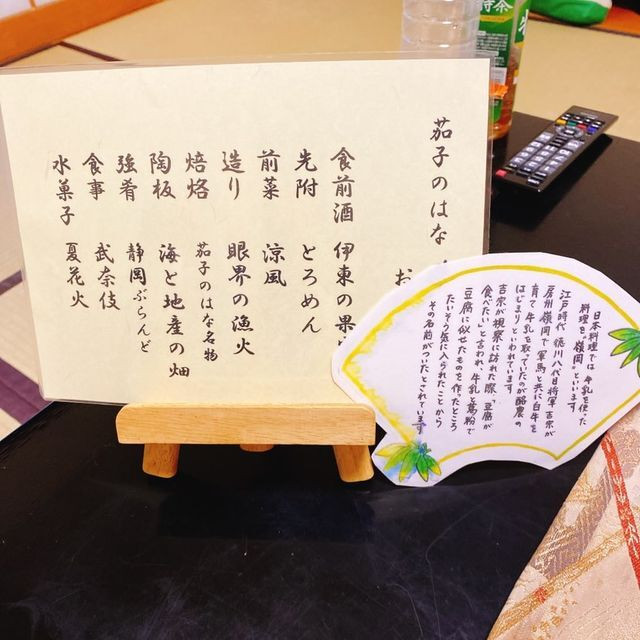 茄子のはな
お
食前酒 伊東の果
先附 とろめん
前菜 涼風
造り 眼界の漁火
焙烙 茄子のはな名物
陶板 海と地産の畑
強肴 静岡ぶらんど
食事 武奈伎
水菓子 夏花火
日本料理では 牛乳を使った
料理を、嶺岡といいます
江戸時代 徳川八代目将軍 吉宗が
房州嶺岡で 軍馬と共に白牛を
育て 牛乳を取っていたのが酪農の
はじまりといわれています
吉宗が視察に訪れた際「豆腐が
食べたい」と言われ、牛乳と葛粉で
豆腐に似せたものを作ったところ
たいそう気に入られたことから
その名前がついたとされています